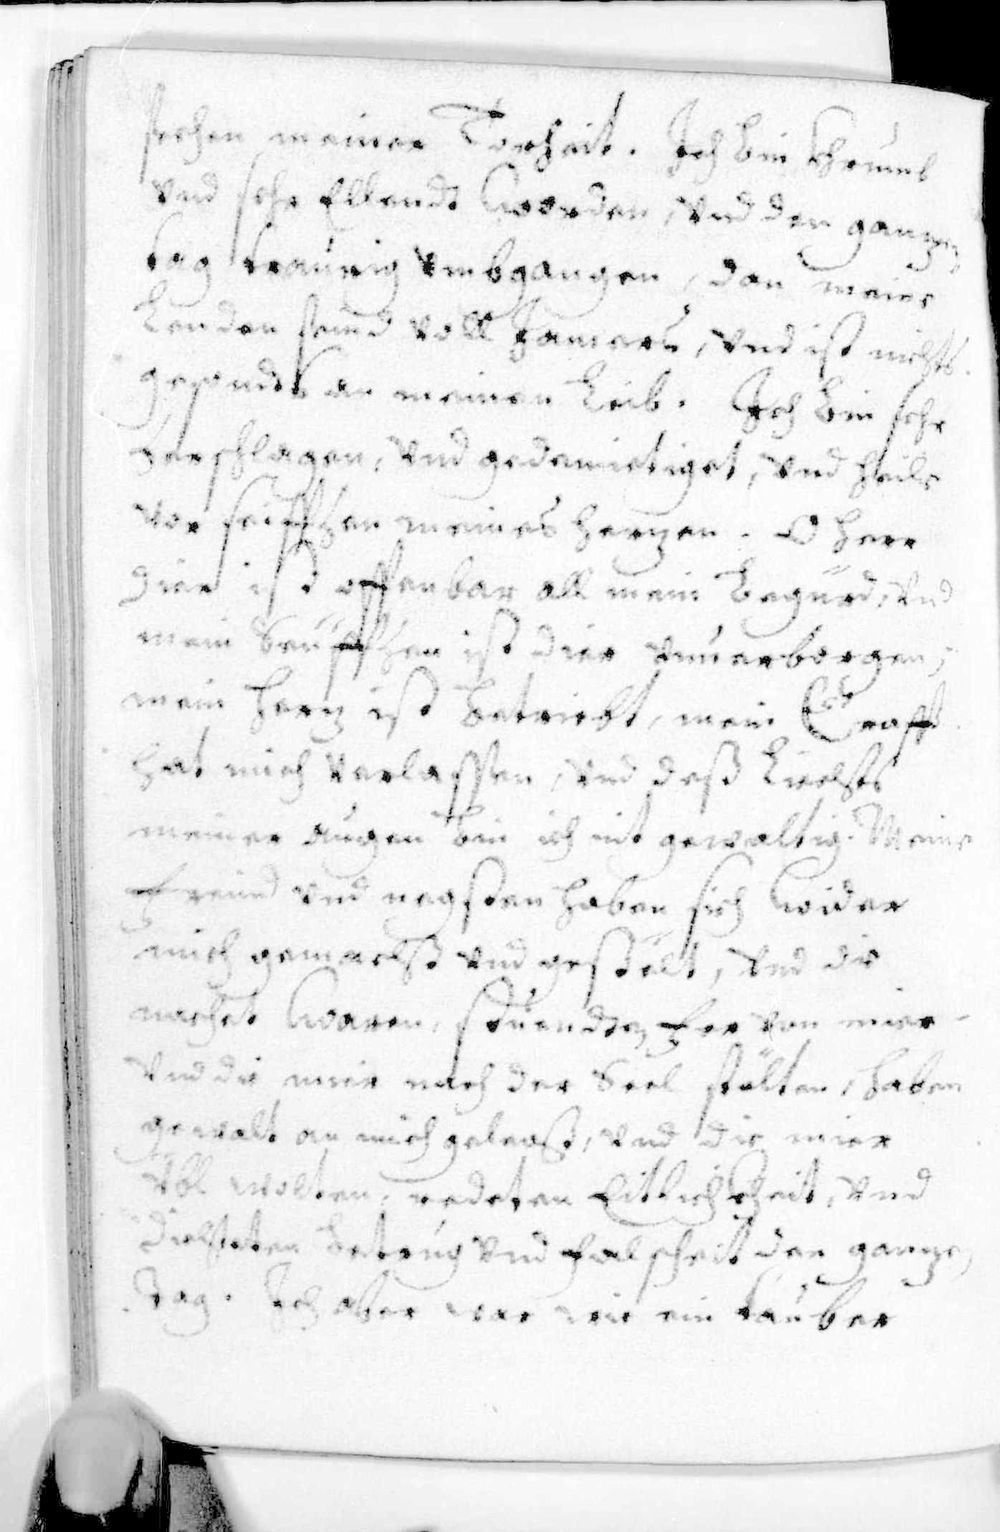 sachen meiner Torheit. Ich bin khrumb
Vnd sehr Ellendt worden, Vnd den gantzen
tag traurig Vmbgangen, dan meine
Lenden seind Voll Jamers, Vnd ist nichts
gesundts an meinen Leib. Ich bin sehr
zerschlagen, Vnd gedemietiget, Vnd heile
Vor seiffzen meines hertzen. O herr
dier ist offenbar all mein begürd, Vnd
mein Seüffzen ist dier Vnuerborgen,
mein hertz ist betriebt, mein Crafft
hat mich Verlassen, Vnd deß Liechts
meiner augen bin ich nit gewaltig. Meine
freind Vnd negsten haben sich wider
mich gemacht Vnd gestelt, Vnd die
nachet waren, stuenden fer von mier
Vnd die mier nach der Seel stelten, haben
gewalt an mich gelegt, Vnd die mier
Vbl wolten, redeten Eitlichkheit, Vnd
dichteten betrug Vnd falscheit den gantzen
tag. Ich aber war wie ein tauber